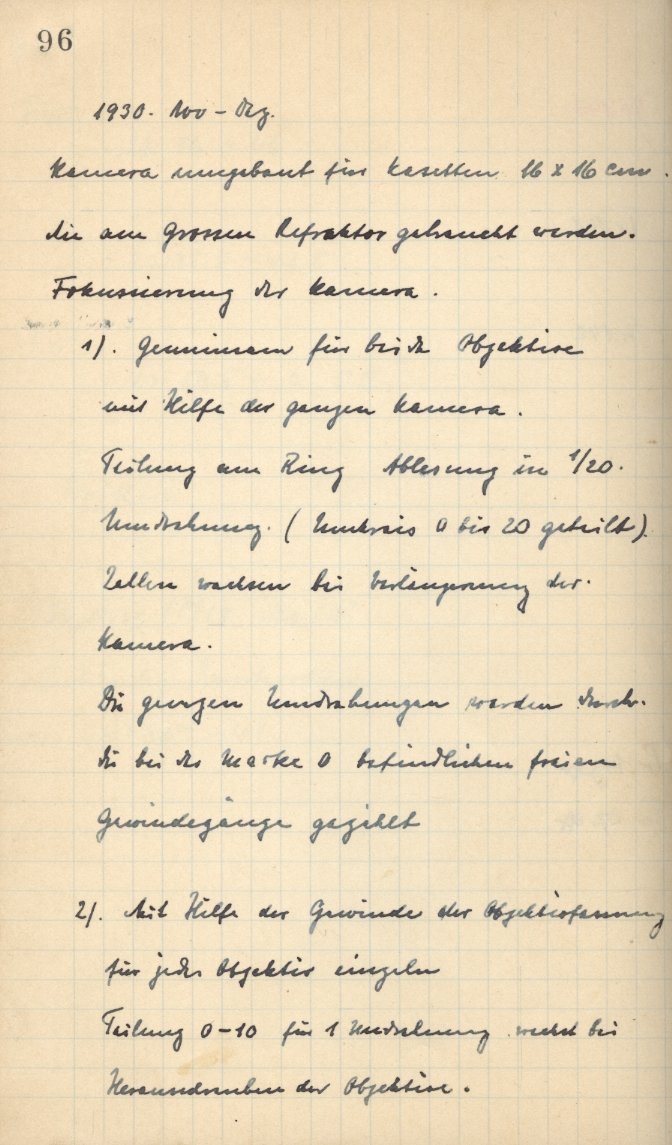 96
1930. Nov – Dez.
Kamera umgebaut für Kasetten 16 x 16 cm.
die am grossen Refraktor gebraucht werden.
Fokussierung der Kamera.
1). Gemeinsam für beide Objektive
mit Hilfe der ganzen Kamera.
Teilung am Ring Ablesung in 1/20.
Umdrehung. (Umkreis 0 bis 20 geteilt).
Zahlen wachsen bei Verlängerung der.
Kamera.
Die ganzen Umdrehungen werden durch.
die bei der Marke 0 befindlichen freien
Gewindegänge gezählt
2). Mit Hilfe der Gewinde der Objektivfassung
für jedes Objektiv einzeln
Teilung 0–10 für 1 Umdrehung wächst bei
Herausschrauben der Objektive.